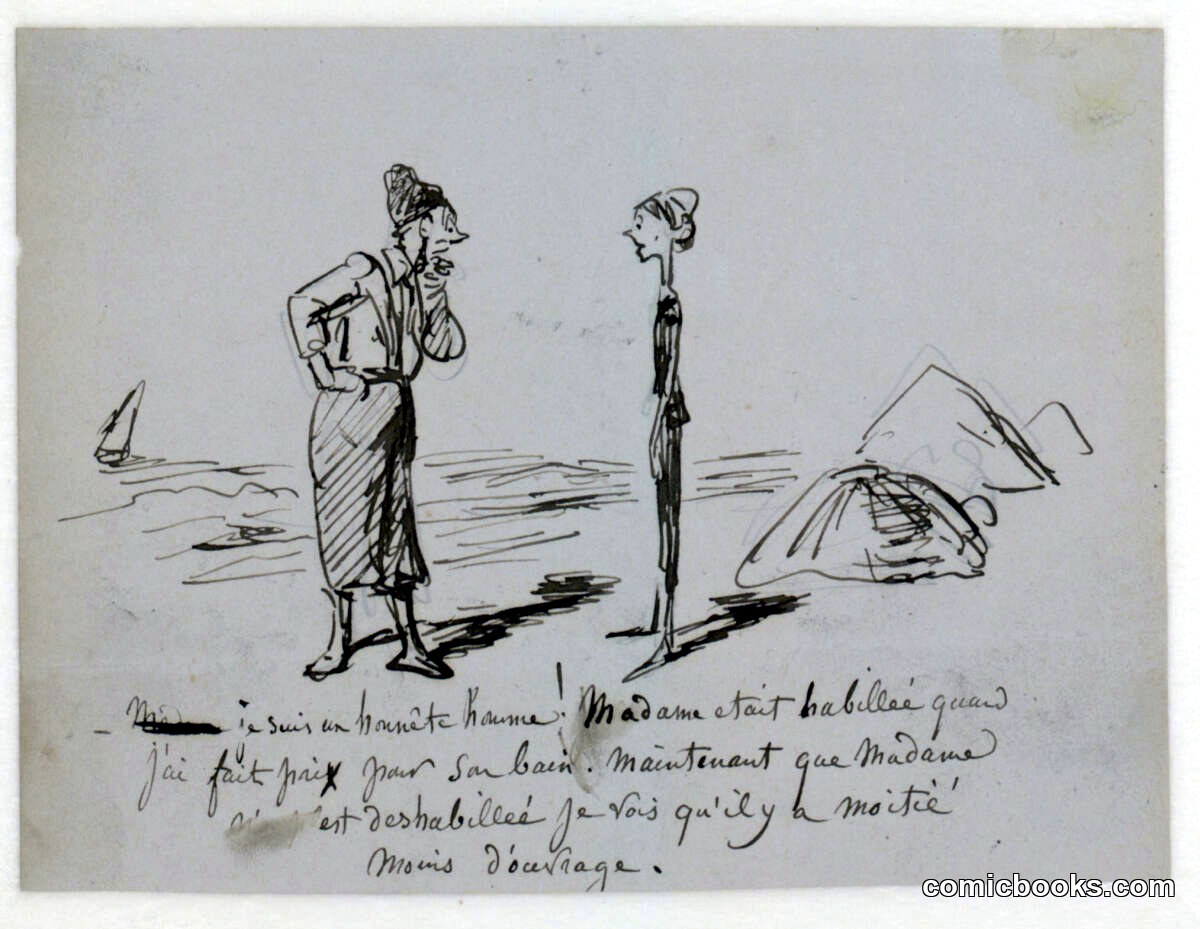 – je suis un honnête homme! Madame etait habilleé quand
j'ai fait prix pour son bain. Maintenant que Madame
est deshabilleé je vois qu'il y a moitié
moins d'ouvrage.
comicbooks.com